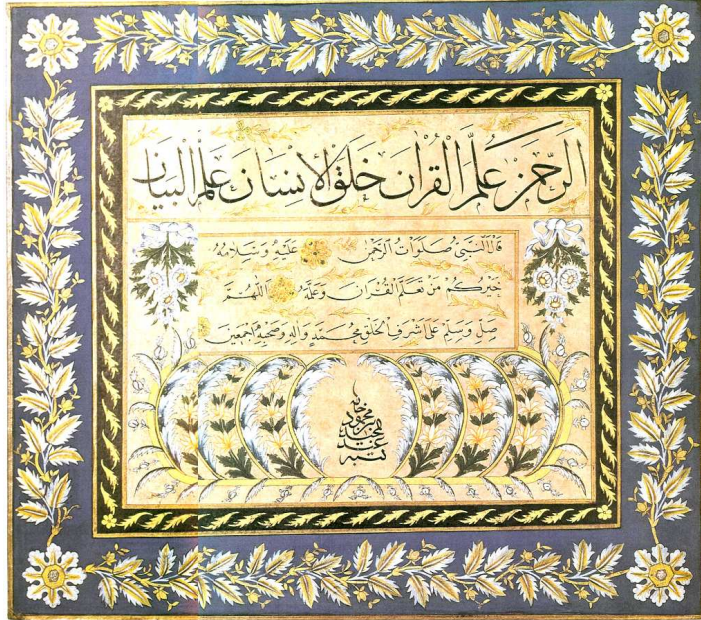 الرحمن علم القرآن خلق الإنسان علمه البيان
قال النبي صلوات الرحمن عليه وسلامه
خيركم من تعلم القرآن وعلمه اللهم
صل وسلم على أشرف الخلق محمد وآله وصحبه أجمعين
كتبه
عبد المجيد
بن محمود
خان